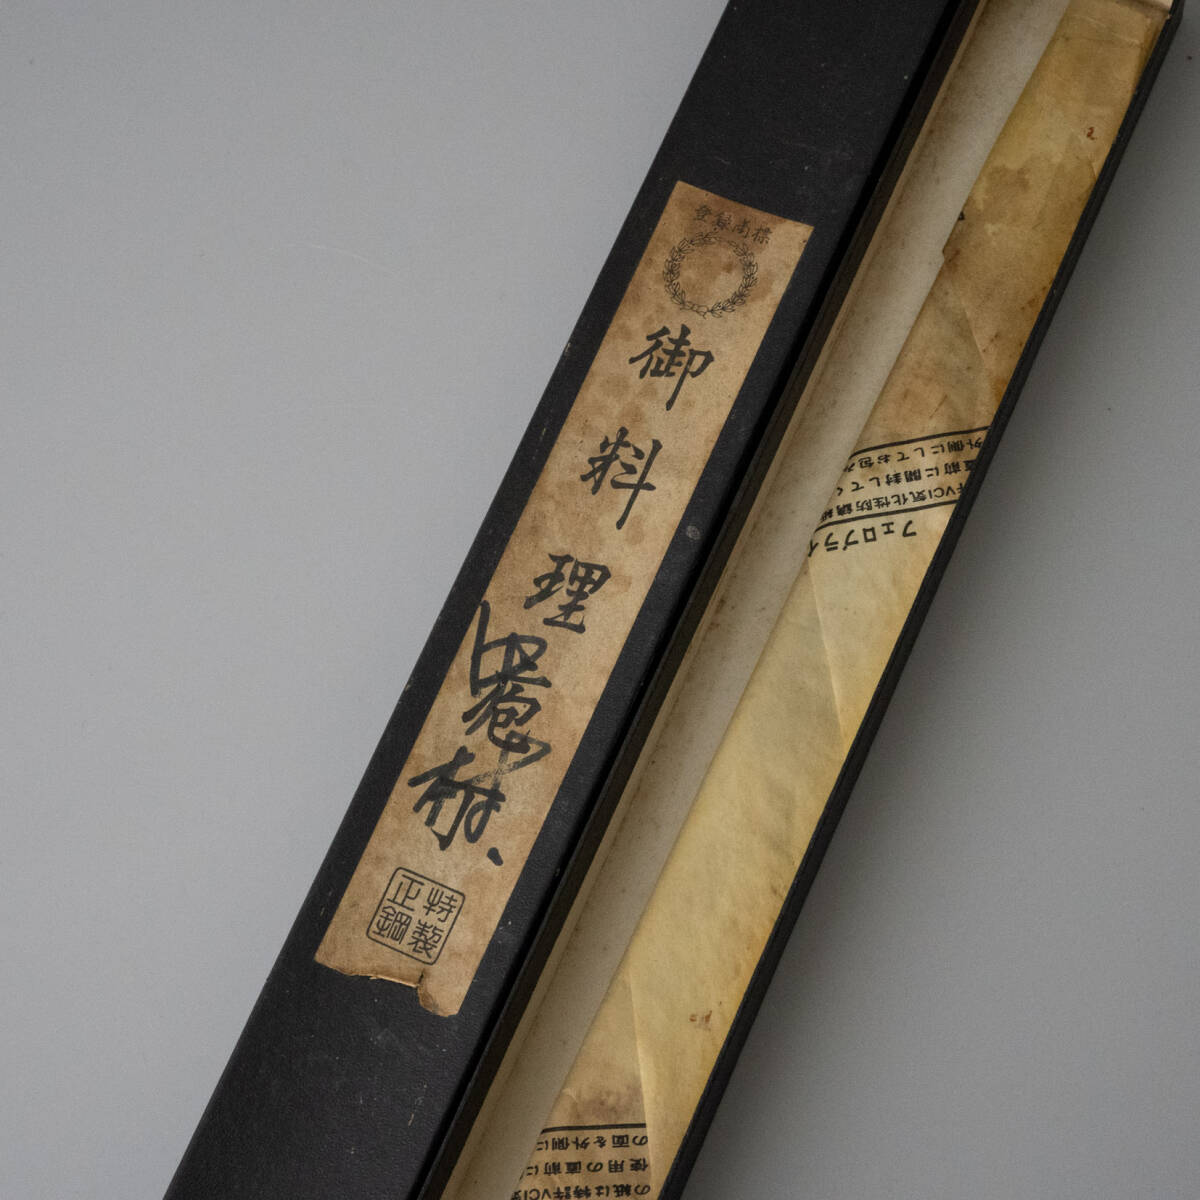 登録商標
御料理
特製
正鋼
フェロブライ
VCI気化性防錆
直前に開封してく
外側にしてお包
の紙は特許VCI
使用の直前に
の面を外側に